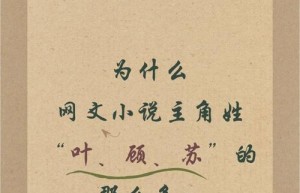 为什么
网文小说主角姓
“叶、顾、苏”的
那么多